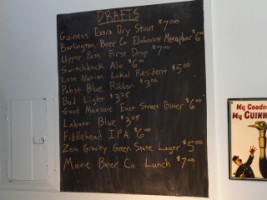 DRAFTS
Guinness Extra Dry Stout $7.00
Burlington Beer Co. Elaborate Metaphor $6.00
Upper Pass First Drop $7.00
Switchback Ale $6.00
Lost Nation Lokal Resident $5.00
Pabst Blue Ribbon $3.00
Bud Light $3.25
Good Measure East Street Bitter $6.00
Labatt Blue $3.00
Fiddlehead IPA $6.00
Zero Gravity Green State Lager $5.00
Maine Beer Co. Lunch $7.00
My Goodness
My GUINN